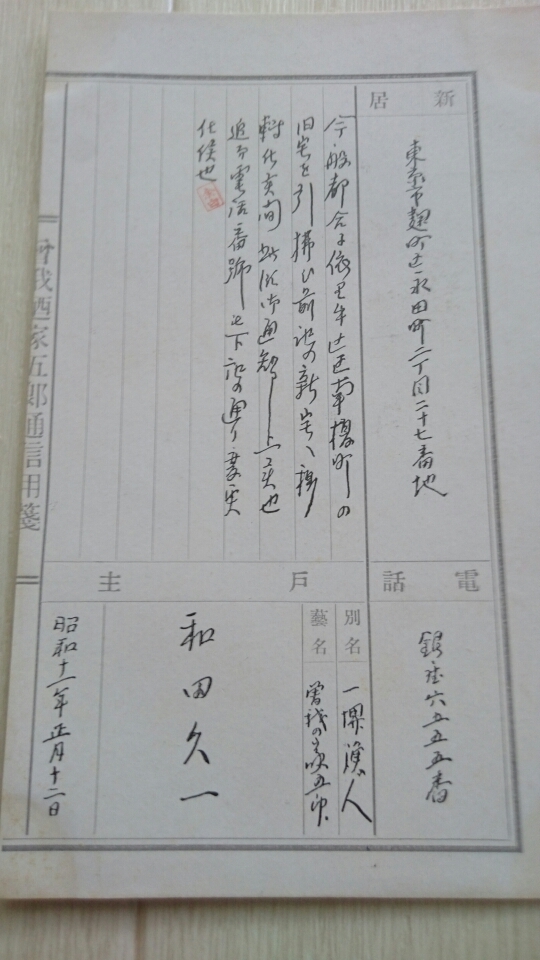 新居
東京市麹町区永田町二丁目二十七番地
今般都合に依り牛込区南榎町の
旧宅を引拂ひ前記の新宅へ移
轉仕候間此段御通知申上候也
追而電話番號も下記の通り変更
仕候也
電話
銀座六五五五番
戸主
別名 一堺漁人
藝名 曽我の家五郎
和田久一
昭和十二年正月十二日
曾我廼家五郎通信用箋